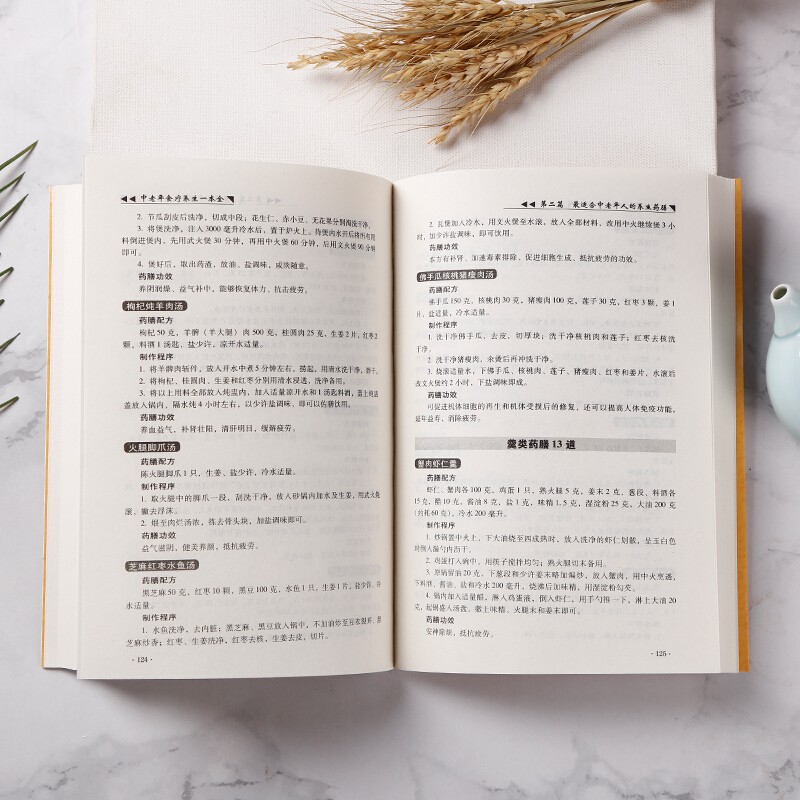 中老年食疗养生一本全
2. 节瓜刮皮后洗净，切成中段；花生仁、赤小豆、无花果分别淘洗干净。
3. 将煲洗净，注入3000毫升冷水后，置于炉火上。待煲内水开后将所有用
料倒进煲内，先用武火煲30分钟，再用中火煲60分钟，后用文火煲90分钟
即可。
4. 煲好后，取出药渣，放油、盐调味，咸淡随意。
药膳功效
养阴润燥、益气补中，能够恢复体力、抗击疲劳。
枸杞炖羊肉汤
药膳配方
枸杞50克，羊髀（羊大腿）肉500克，桂圆肉25克，生姜2片，红枣2
颗，料酒1汤匙，盐少许，凉开水适量。
制作程序
1. 将羊髀肉斩件，放入开水中煮5分钟左右，捞起，用清水洗干净，备于。
2. 将枸杞、桂圆肉、生姜和红枣分别用清水浸透，洗净备用。
3. 将以上用料全部放入炖盅内，加入适量凉开水和1汤匙料酒，盖上炖盅
盖放入锅内，隔水炖4小时左右，以少许盐调味，即可以佐膳饮用。
药膳功效
养血益气，补肾壮阳，清肝明目，缓解疲劳。
火腿脚爪汤
药膳配方
陈火腿脚爪1只，生姜、盐少许，冷水适量。
制作程序
1. 取火腿中的脚爪一段，刮洗干净，放入砂锅内加水及生姜，用武火烧
滚，撇去浮沫。
2. 煨至肉烂汤浓，拣去骨头块，加盐调味即可。
药膳功效
益气滋阴，健美养颜，抵抗疲劳。
芝麻红枣水鱼汤
药膳配方
黑芝麻50克，红枣10颗，黑豆100克，水鱼1只，生姜1片，盐少许，冷
水适量。
制作程序
1. 水鱼洗净，去内脏；黑芝麻、黑豆放入锅中，不加油炒至豆衣裂开，黑
芝麻炒香；红枣、生姜洗净，红枣去核，生姜去皮，切片。
· 124 ·
第二篇 最适合中老年人的养生药膳
2. 瓦煲加入冷水，用文火煲至水滚，放入全部材料，改用中火继续煲3小
时，加少许盐调味，即可饮用。
药膳功效
本方有补肾、加速毒素排除、促进细胞生成、抵抗疲劳的功效。
佛手瓜核桃猪瘦肉汤
药膳配方
佛手瓜150克，核桃肉30克，猪瘦肉100克，莲子30克，红枣3颗，姜1
片，盐适量，冷水适量。
制作程序
1. 洗干净佛手瓜，去皮，切厚块；洗干净核桃肉和莲子；红枣去核洗
干净。
2. 洗干净猪瘦肉，汆烫后再冲洗干净。
3. 烧滚适量水，下佛手瓜、核桃肉、莲子、猪瘦肉、红枣和姜片，水滚后
改文火煲约2小时，下盐调味即成。
药膳功效
可促进机体细胞的再生和机体受损后的修复，还可以提高人体免疫功能，
延年益寿、消除疲劳。
羹类药膳13道
蟹肉虾仁羹
药膳配方
虾仁、蟹肉各100克，鸡蛋1只，熟火腿5克，姜末2克，葱段、料酒各
15克，醋10克，酱油8克，盐1克，味精1.5克，湿淀粉25克，大油200克
（约耗60克），冷水200毫升。
制作程序
1. 炒锅置中火上，下大油烧至四成热时，放入洗净的虾仁划散，呈玉白色
时倒入漏勺内沥干。
2. 鸡蛋打入碗中，用筷子搅拌均匀；熟火腿切末备用。
3. 原锅留油20克，下葱段和少许姜末略加煸炒，放入蟹肉，用中火烹透，
下料酒、酱油、盐和冷水200毫升，烧沸后加味精，用湿淀粉勾芡。
4. 锅内加入适量醋，淋入鸡蛋液，倒入虾仁，用手勺推一下，淋上大油20
克，起锅盛入汤盘，撒上味精、火腿末和姜末即可。
药膳功效
安神除烦，抵抗疲劳。
· 125 ·